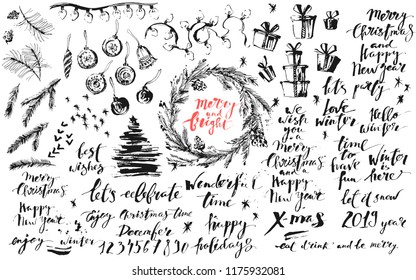 Merry
Christmas
and
Happy
New year
let's party
merry
and
bright
We
wish
you
a
Merry
Christmas
and a
Happy
New
Year!
Love
winter
Hello
winter
time
to
have
fun
Winter
is
here
best
wishes
Merry
Christmas
Happy
New Year!
enjoy winter
let's celebrate
Enjoy Christmas time
December
1 2 3 4 5 6 7 8 9 0
Wonderful
time
happy
holidays
X-mas
let it snow
2019 year
eat drink and be merry
shutterstock.com · 1175932081